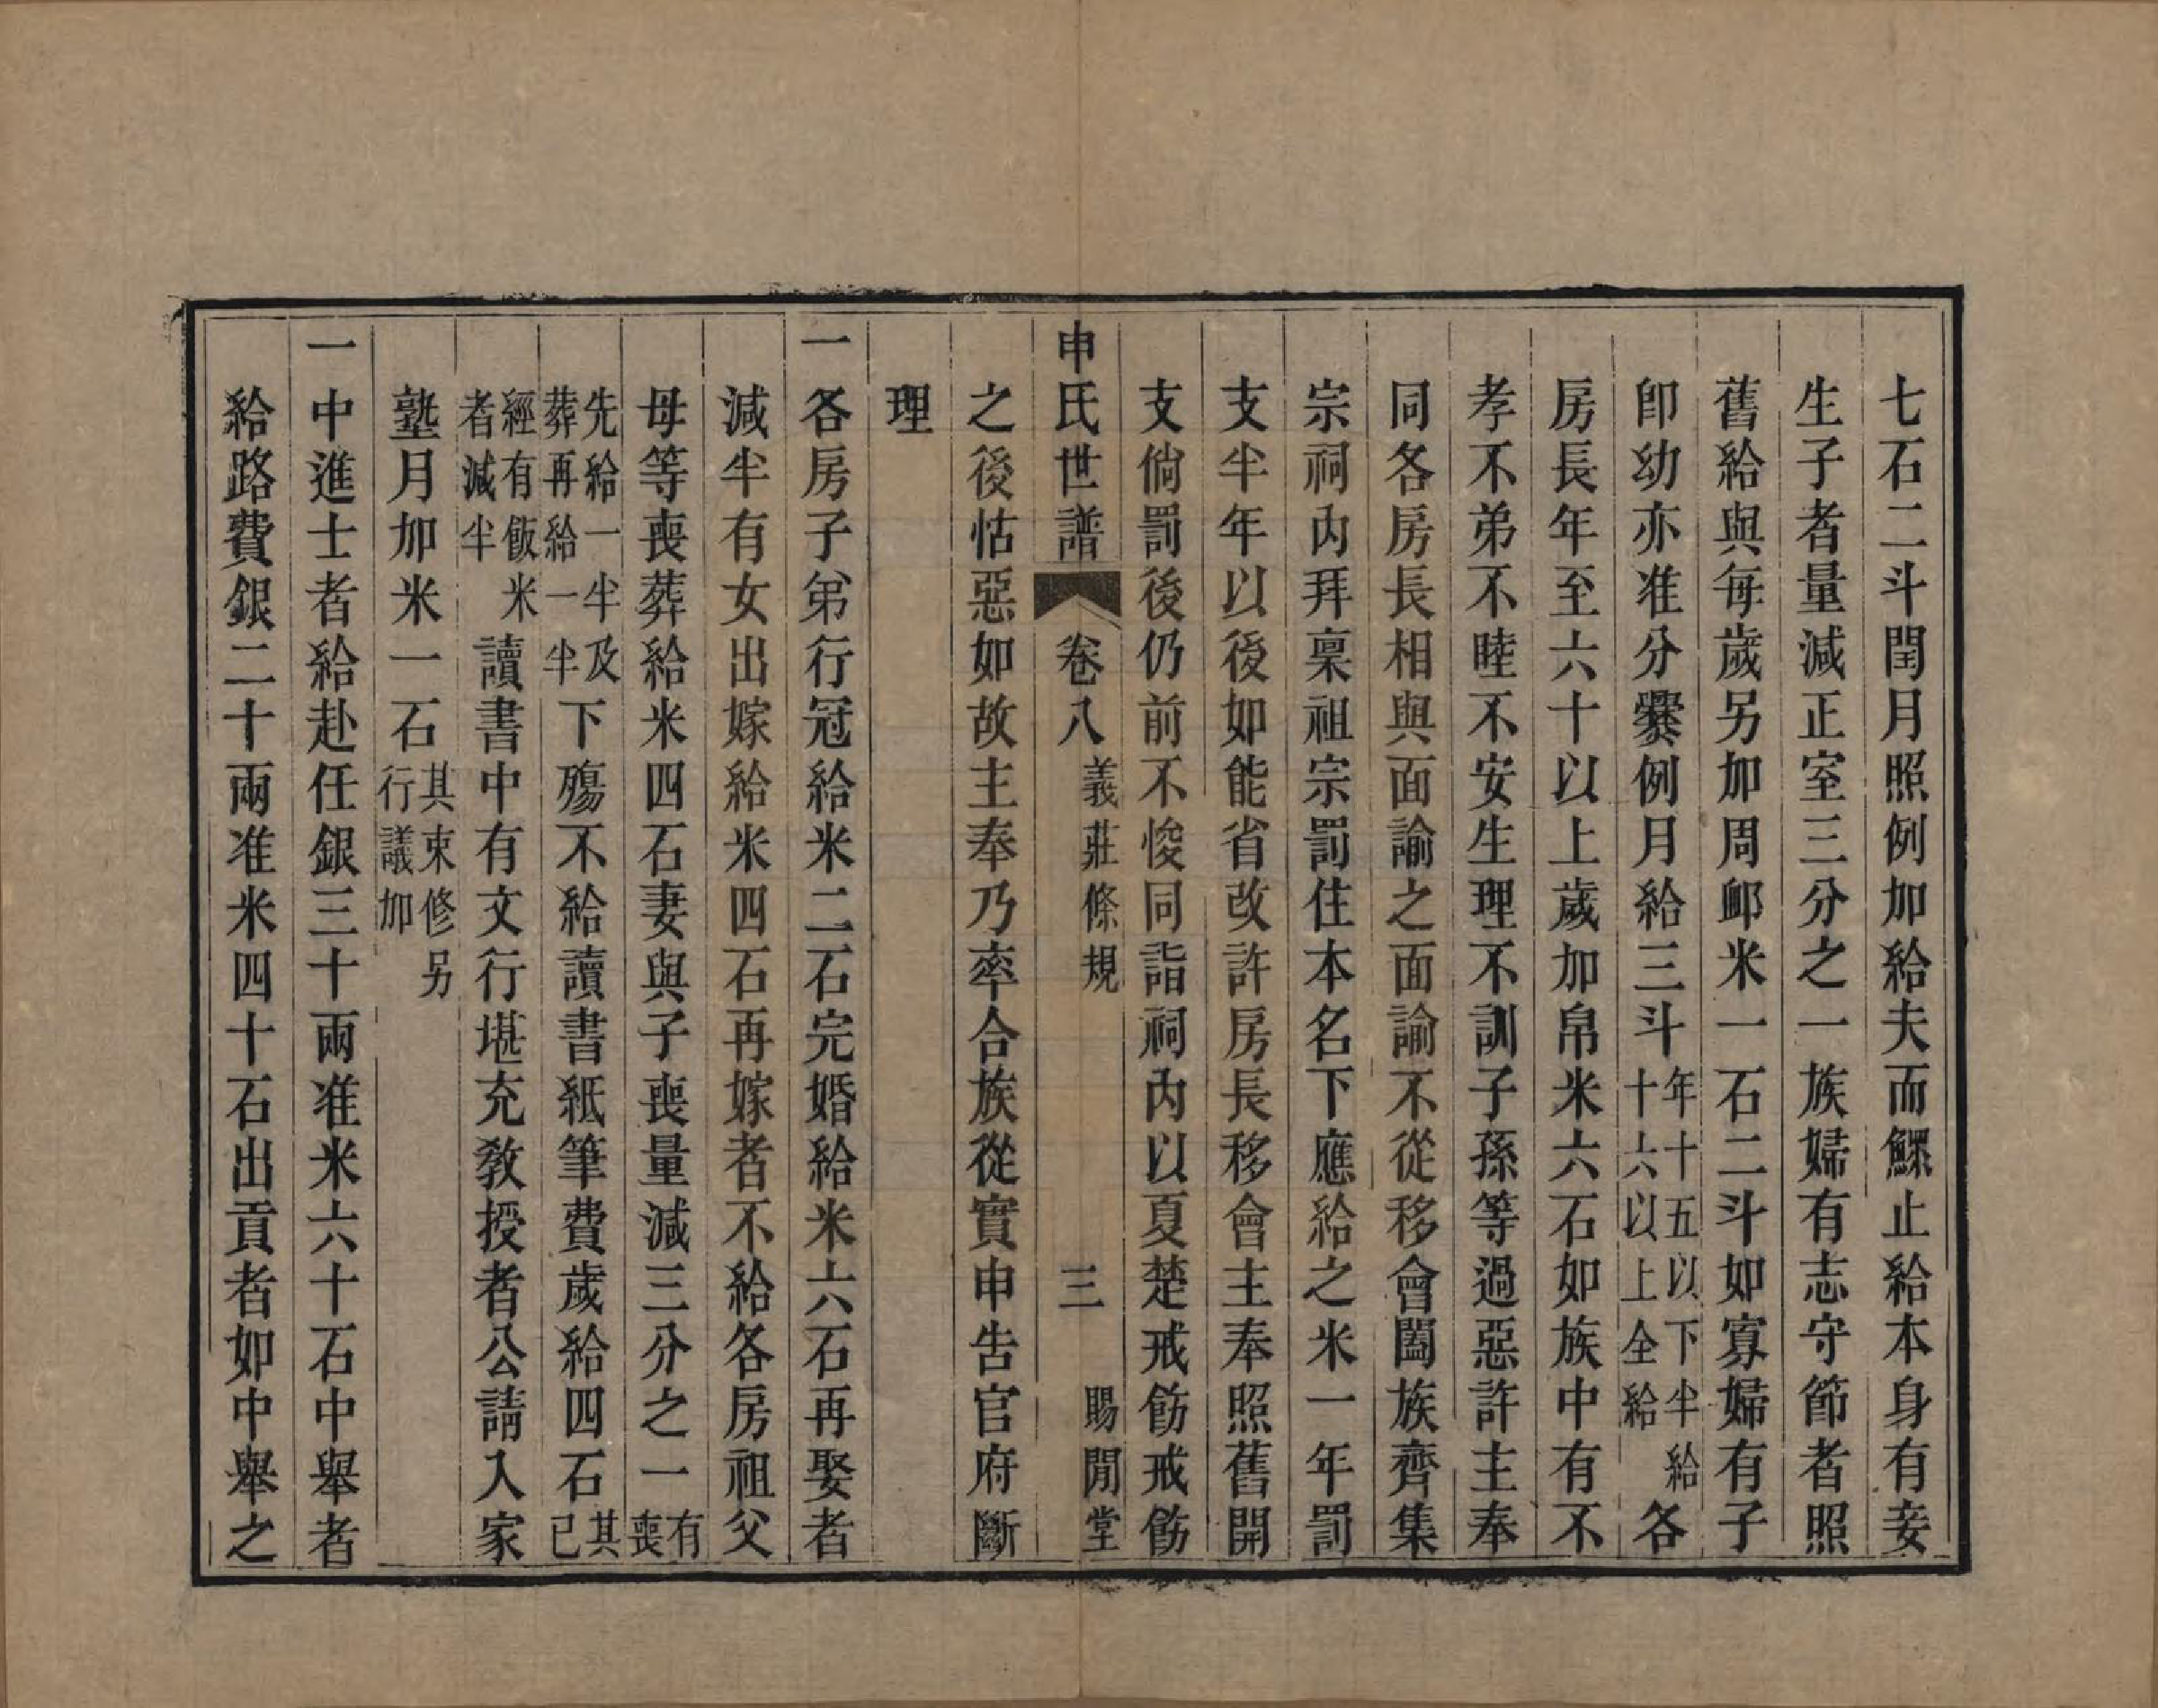 七石二斗閏月照例加給夫而鰥止給本身有妾
生子者量減正室三分之一族婦有志守節者照
舊給與每歲另加周䘏米一石二斗如寡婦有子
卽幼亦准分爨例月給三斗年十五以下半給十六以上全給各
房長年至六十以上歲加帛米六石如族中有不
孝不弟不睦不安生理不訓子孫等過惡許主奉
同各房長相與面諭之面諭不從移會闔族齊集
宗祠內拜稟祖宗罰住本名下應給之米一年罰
支半年以後如能省改許房長移會主奉照舊開
支倘罰後仍前不悛同詣祠內以夏楚戒飭戒飭
申氏世譜 卷八 義莊條規 三 賜閒堂
之後怙惡如故主奉乃率合族從實申告官府斷
理
一各房子弟行冠給米二石完婚給米六石再娶者
減半有女出嫁給米四石再嫁者不給各房祖父
母等喪葬給米四石妻與子喪量減三分之一有喪
先給一半及葬再給一半下殤不給讀書紙筆費歲給四石其已
經有飯米者減半讀書中有文行堪充敎授者公請入家
塾月加米一石其束修另行議加
一中進士者給赴任銀三十兩准米六十石中舉者
給路費銀二十兩准米四十石出貢者如中舉之